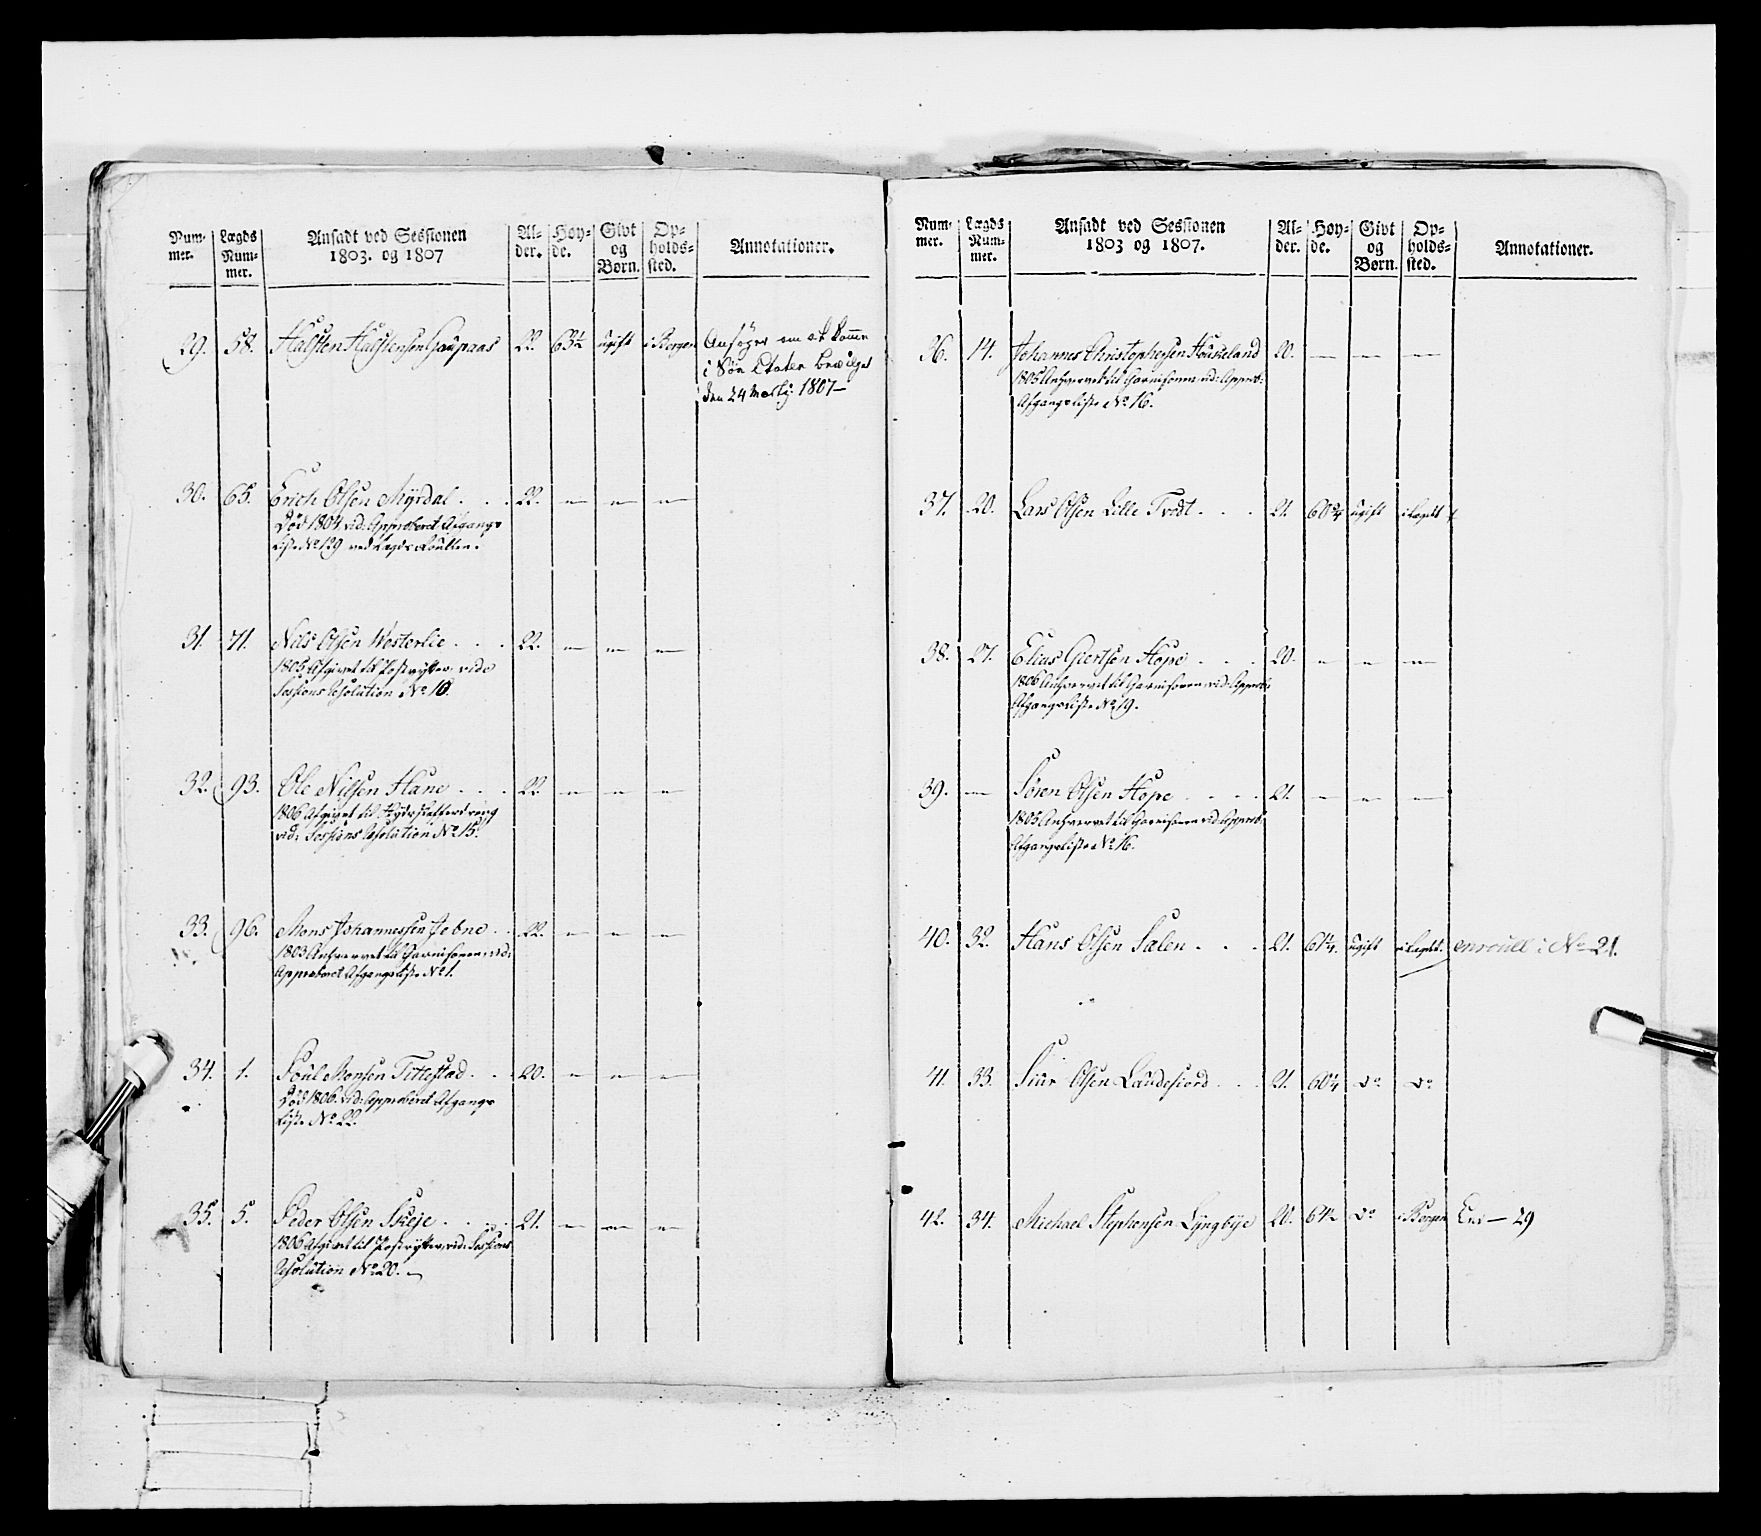 Num-
mer.
Lægds
Num-
mer.
Ansadt ved Sessionen
1803. og 1807
Al-
der.
Høy-
de.
Givt
og
Børn.
Op-
holds-
sted.
Annotationer.
29. 58. Halsten Halstensen Gaupaas 22. 63½ ugift i Bergen Ansøger om at komme
i Søe Etaten bevilget
den 24 Marty 1807—
30. 65. Erich Olsen Myrdal . . . 22. — — —
Død 1804 vid: Approberet Afgangs
Liste No 129 ved Lægds Roullen.
31. 71. Nils Olsen Westerlie . . . 22. — — —
1805 Afgivet til Postrytter vide
Sessions Resolution No 10.
32. 93. Ole Nilsen Hane . . . 22. — — —
1806 Afgivet til
vid: Sessions Resolution No 15.
33. 96. Mons Johannessen Jebne . . 22. — — —
1803 Anhvervet til Garnisonen vid:
Approberet Afgangsliste No 1.
34. 1. Poul Monsen Tittestad . . 20. — — —
Død 1806. vid: Approberet Afgangs
Liste No 22.
35. 5. Peder Olsen Skeje . . . . 21. — — —
1806 Afgivet til Postrytter, vid: Sessions
Resolution No 20. —
Num-
mer.
Lægds
Num-
mer.
Ansadt ved Sessionen
1803 og 1807.
Al-
der.
Høy-
de.
Givt
og
Børn.
Op-
holds-
sted.
Annotationer.
36. 14. Johannes Christophersen Houkeland 20. — — —
1805 Anhvervet til Garnisonen vid: Approb:
Afgangsliste No 16.
37. 20. Lars Olsen Lille Tvedt . . . 21. 60¾ ugift i Lægdet
38. 27. Elias Giertsen Hope . . . 20. — — —
1806 Anhvervet til Garnisonen vid: Approb:
Afgangsliste No 19.
39. — Søren Olsen Hope . . . . 21. — — —
1805 Anhvervet til Garnisonen vid Approb:
Afgangsliste No 16.
40. 32. Hans Olsen Salen . . . 21. 61¼ ugift i Lægdet. enroull: No 21.
41. 33. Siur Olsen Laudesiord . . . 21. 60¼ do do
42. 34. Michael Stephensen Lyngbye 20. 64½ do i Bergen Enr — 29